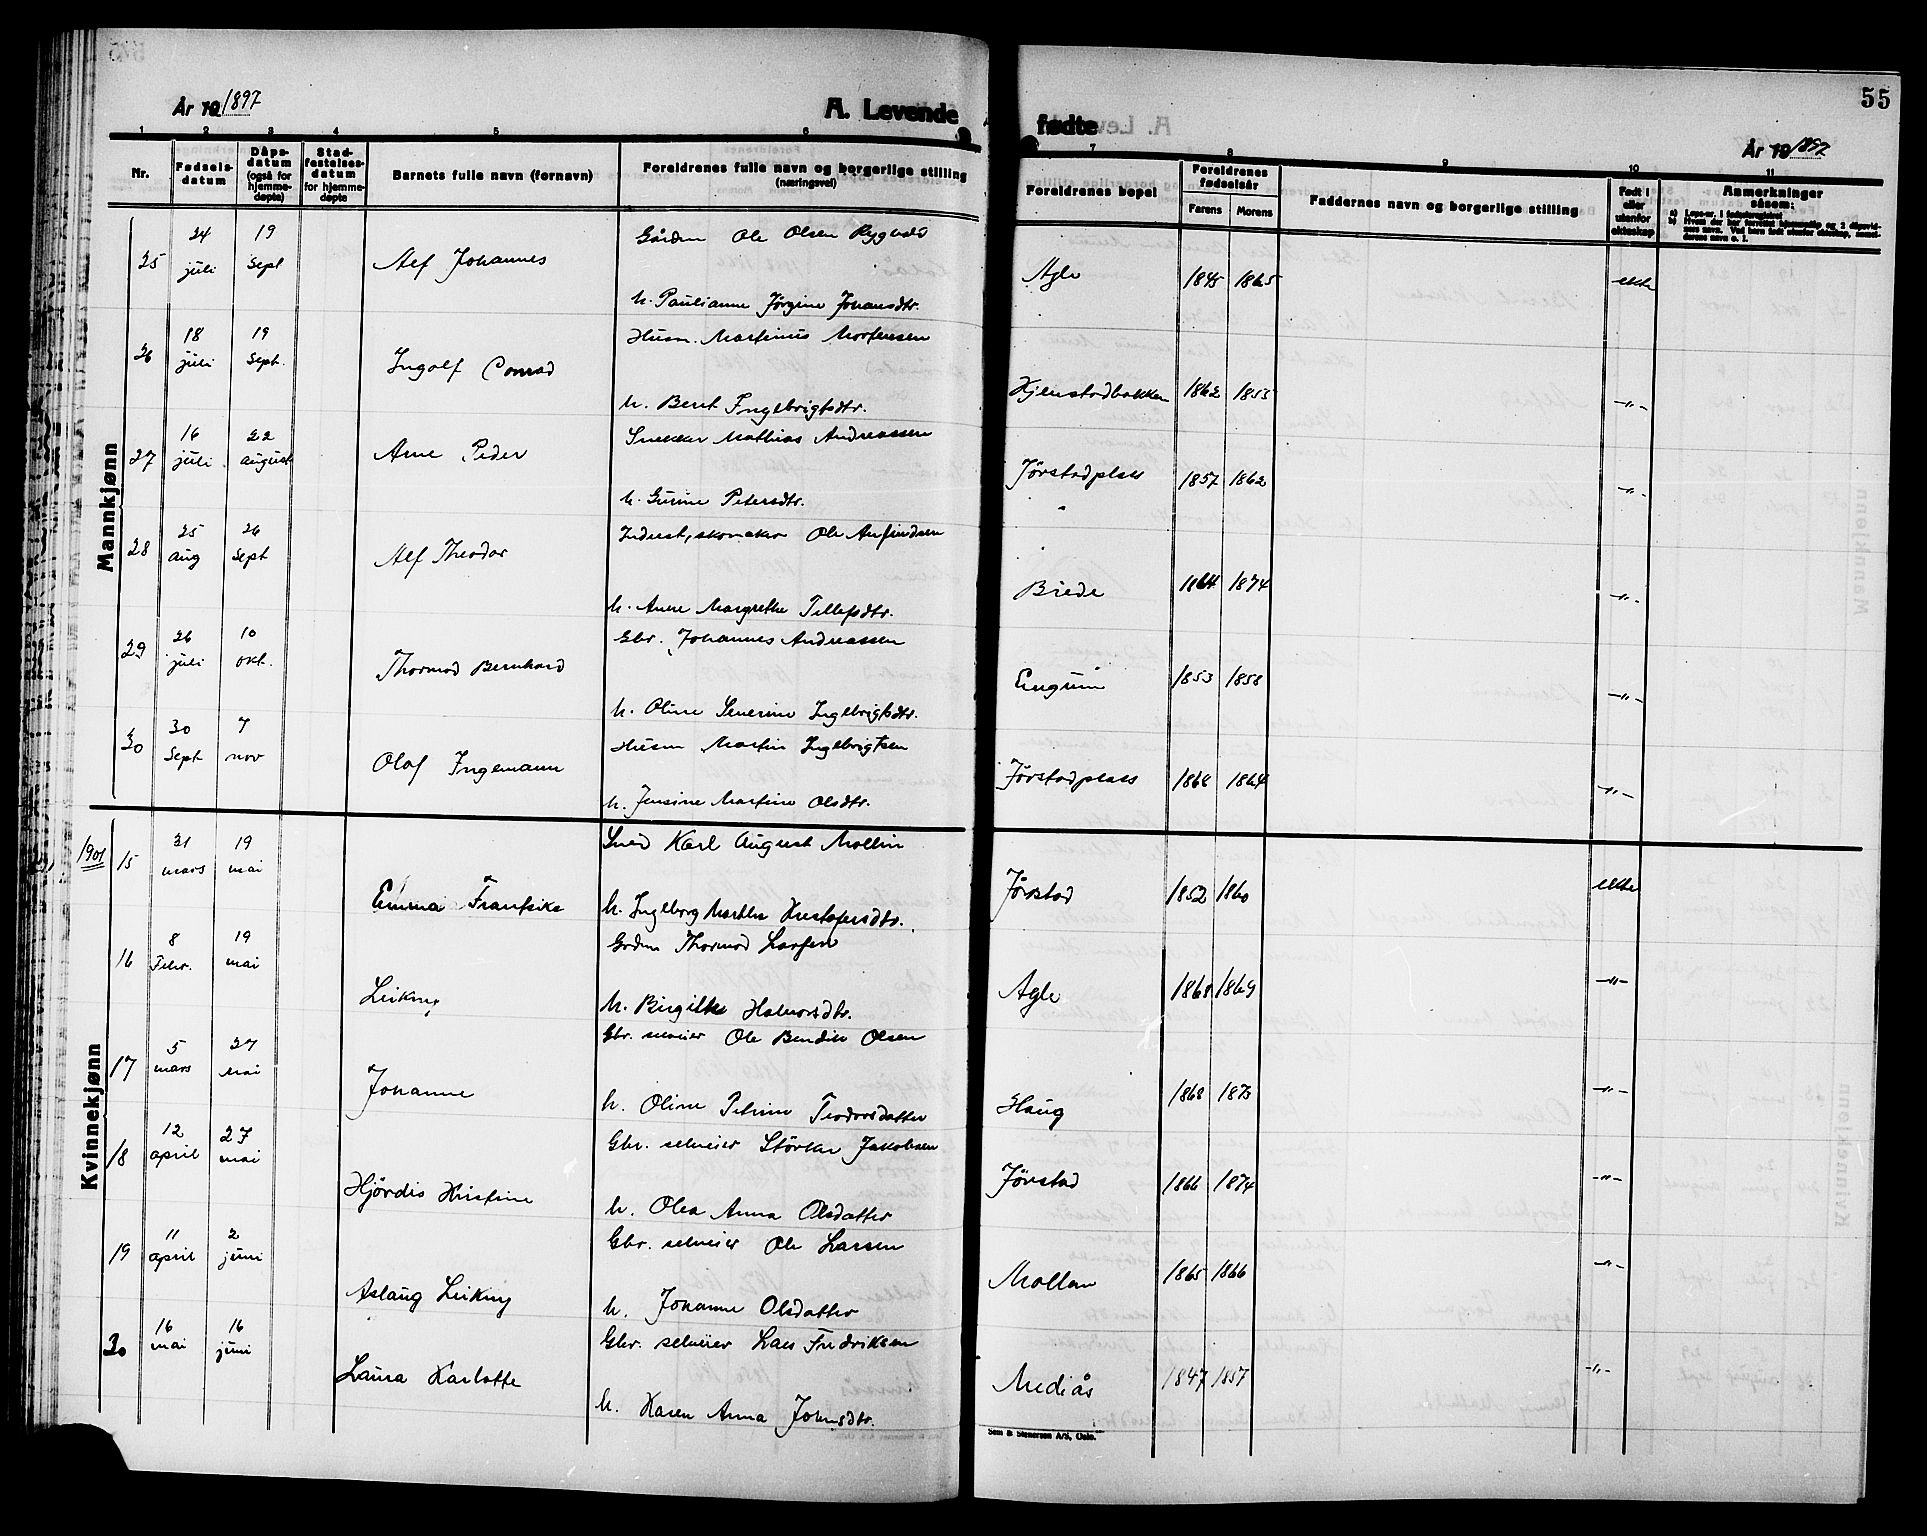 År 19 1897
A. Levende
fødte
55
År 19 1897
1 2 3 4 5 6 7 8 9 10 11
Nr.
Fødsels-datum
Dåps-datum (også for hjemme-døpte)
Stad-festelses-datum for hjemme-døpte
Barnets fulle navn (fornavn)
Foreldrenes fulle navn og borgerlige stilling (næringsvei)
Foreldrenes bopel
Foreldrenes fødselsår
Farens Morens
Faddernes navn og borgerlige stilling
Født i eller utenfor ekteskap
Anmerkninger såsom:
Mannkjønn
25 24 juli 19 Sept Alf Johannes Gårdm Ole Olsen
h. Paulianne Jørgine Johansdtr. Agle 1845 1865 ekte
26 18 juli 19 Sept. Ingolf Conrad Husm. Martinus Mortensen
h. Berit Ingebrigtsdtr. Hjenstadbakken 1862 1855 -"-
27 16 juli 22 august Arne Peder Snekker Mathias Andreassen
h. Gurine Petersdtr. Jørstadplass 1857 1862 -"-
28 25 aug 26 Sept Alf Theodor Inderst, skomaker Ole Anfindsen
h. Anne Margrethe Tellefsdtr. Brede 1864 1874 -"-
29 26 juli 10 okt. Thormod Bernhard Gbr. Johannes Andreassen
h. Oline Severine Ingebrigtsdtr. 1853 1858 -"-
30 30 Sept 7 nov Olaf Ingemann Husm Martin Ingebrigtsen
h. Jensine Martine Olsdtr. Jørstadplass 1868 1864 -"-
Kvinnekjønn
1901
15 31 mars 19 mai Emma Fransiska Smed Karl August Mollin
h. Ingeborg Marthe Kristofersdtr. Jørstad 1852 1860 ekte
16 8 Febr. 19 mai Leikny Grdm Thormod Larsen
h. Birgitte Halvorsdtr. Agle 1868 1869 -"-
17 5 mars 27 Mai Johanne Gbr. selveier Ole Bendik Olsen
h. Oline Petrine Teodorsdatter Haug 1868 1873 -"-
18 12 april 27 mai Hjördis Kristine Gbr. selveier Störker Jakobsen
h. Olea Anna Olsdatter Jørstad 1866 1874 -"-
19 11 april 2 juni Aslaug Leikny Gbr. selveier Ole Larsen
h. Johanne Olsdatter Mollan 1865 1866 -"-
20 16 mai 16 juni Laura Karlotte Gbr. selveier Lars Fredriksen
h. Karen Anna Johnsdtr. Mediås 1847 1857 -"-
Sem & Stenersen A/S, Oslo.